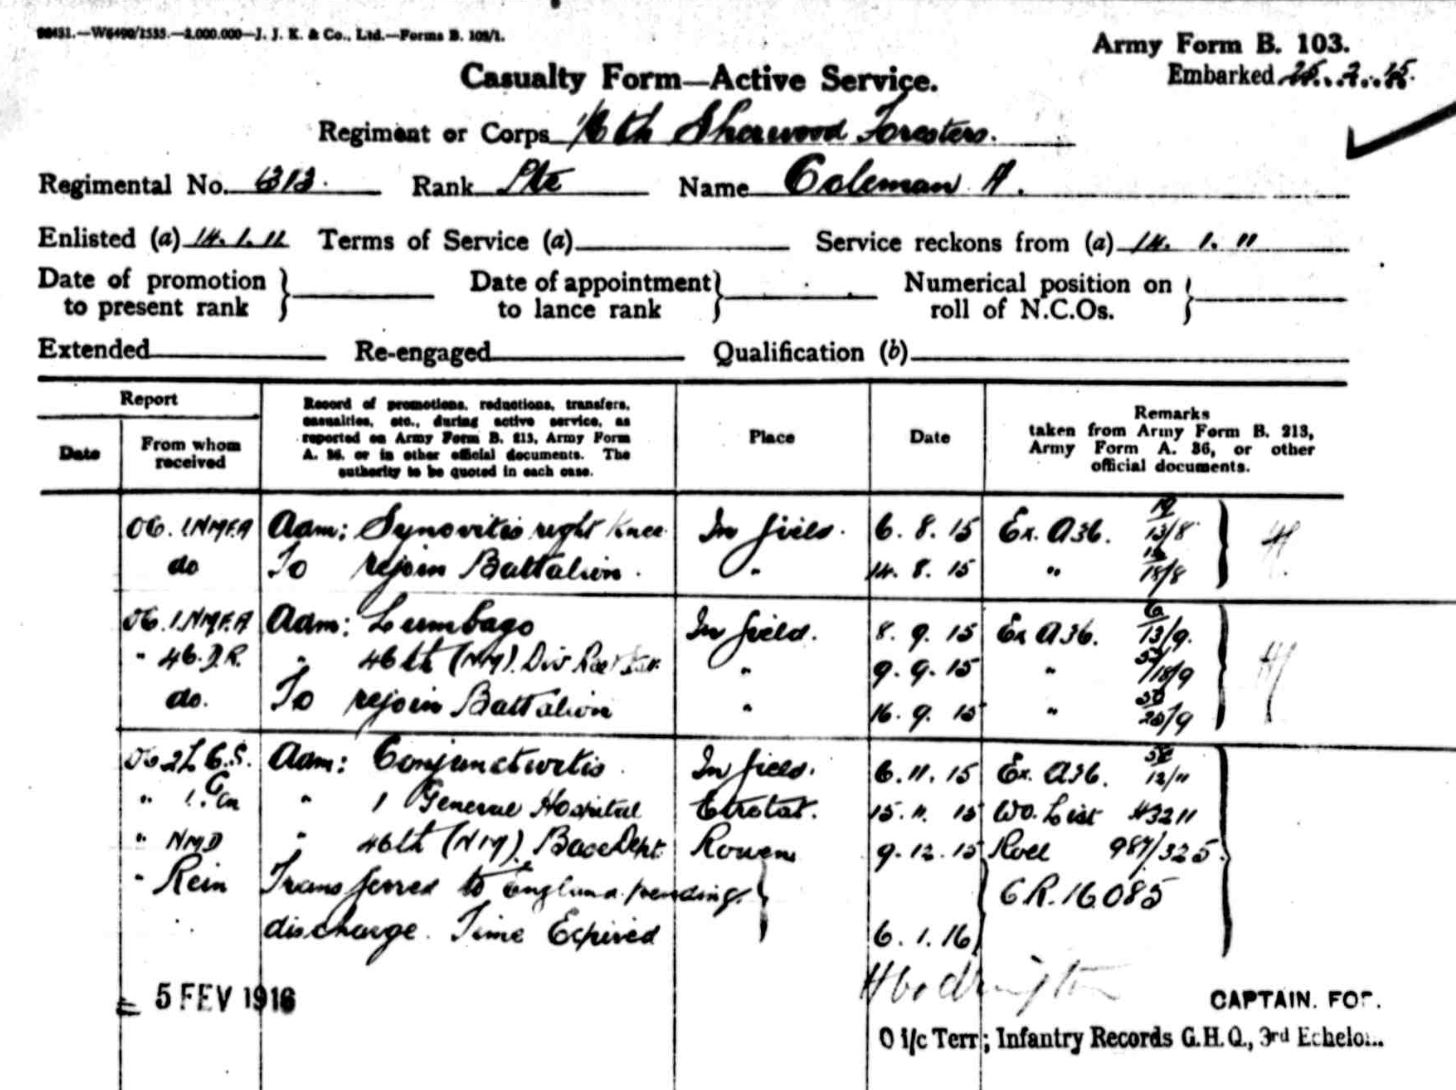 W6490/1535.—2.000.000—J. J. K. & Co., Ltd.—Forms B. 103/1.
Army Form B. 103.
Casualty Form—Active Service.
Embarked
Regiment or Corps Sherwood Foresters.
Regimental No. 1313. Rank Pte Name Coleman A.
Enlisted (a) 14.1.11 Terms of Service (a) Service reckons from (a) 14. 1. 11
Date of promotion to present rank } Date of appointment to lance rank } Numerical position on roll of N.C.Os. }
Extended Re-engaged Qualification (b)
Report
Date
From whom received
Record of promotions, reductions, transfers, casualties, etc., during active service, as reported on Army Form B. 213, Army Form A. 36, or in other official documents. The authority to be quoted in each case.
Place
Date
Remarks
taken from Army Form B. 213, Army Form A. 36, or other official documents.
OC. 1.NMFA Aam: Synovitis right Knee In field. 6. 8. 15 Ex. A36. 13/8
do To rejoin Battalion. " 14. 8. 15 " 18/8
OC. 1.NMFA Aam: Lumbago In field. 8. 9. 15 Ex A36. 6 13/9.
" 46.D.R. " 46th (NM). Div " 9. 9. 15 " 18/9
do. To rejoin Battalion " 16. 9. 15 " 20/9
Aam: Conjunctivitis. In field. 6. 11. 15 Ex. A36. 12/11
" 1. Gen " 1 General Hospital Etretat. 15. 11. 15 WO. List H3211
" NMD " 46th (NM). Base Dept Rouen 9. 12. 15 Roll 987/325
" Rein Transferred to England pending C.R. 16085
discharge. Time Expired 6. 1. 16
5 FEV 1916
CAPTAIN. FOR.
O i/c Terr; Infantry Records G.H.Q., 3rd Echelon.